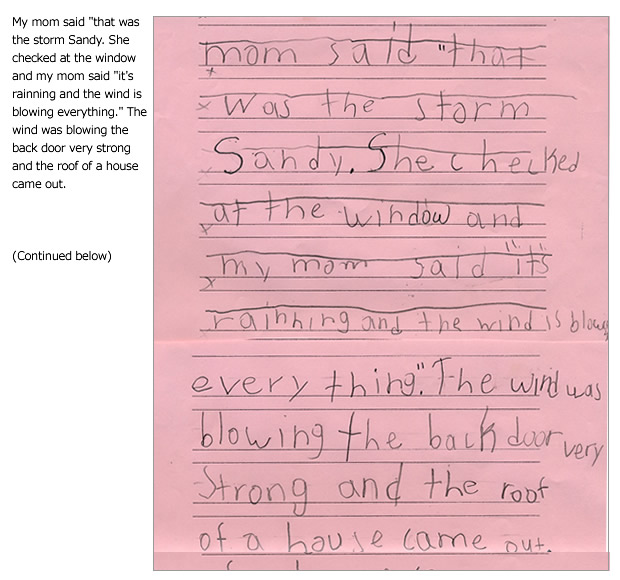 My mom said "that was
the storm Sandy. She
checked at the window
and my mom said "it's
rainning and the wind is
blowing everything." The
wind was blowing the
back door very strong
and the roof of a house
came out.
(Continued below)
mom said "that
was the storm
Sandy. She checked
at the window and
my mom said "it's
rainning and the wind is blowing
every thing." The wind was
blowing the back door very
strong and the roof
of a house came out.